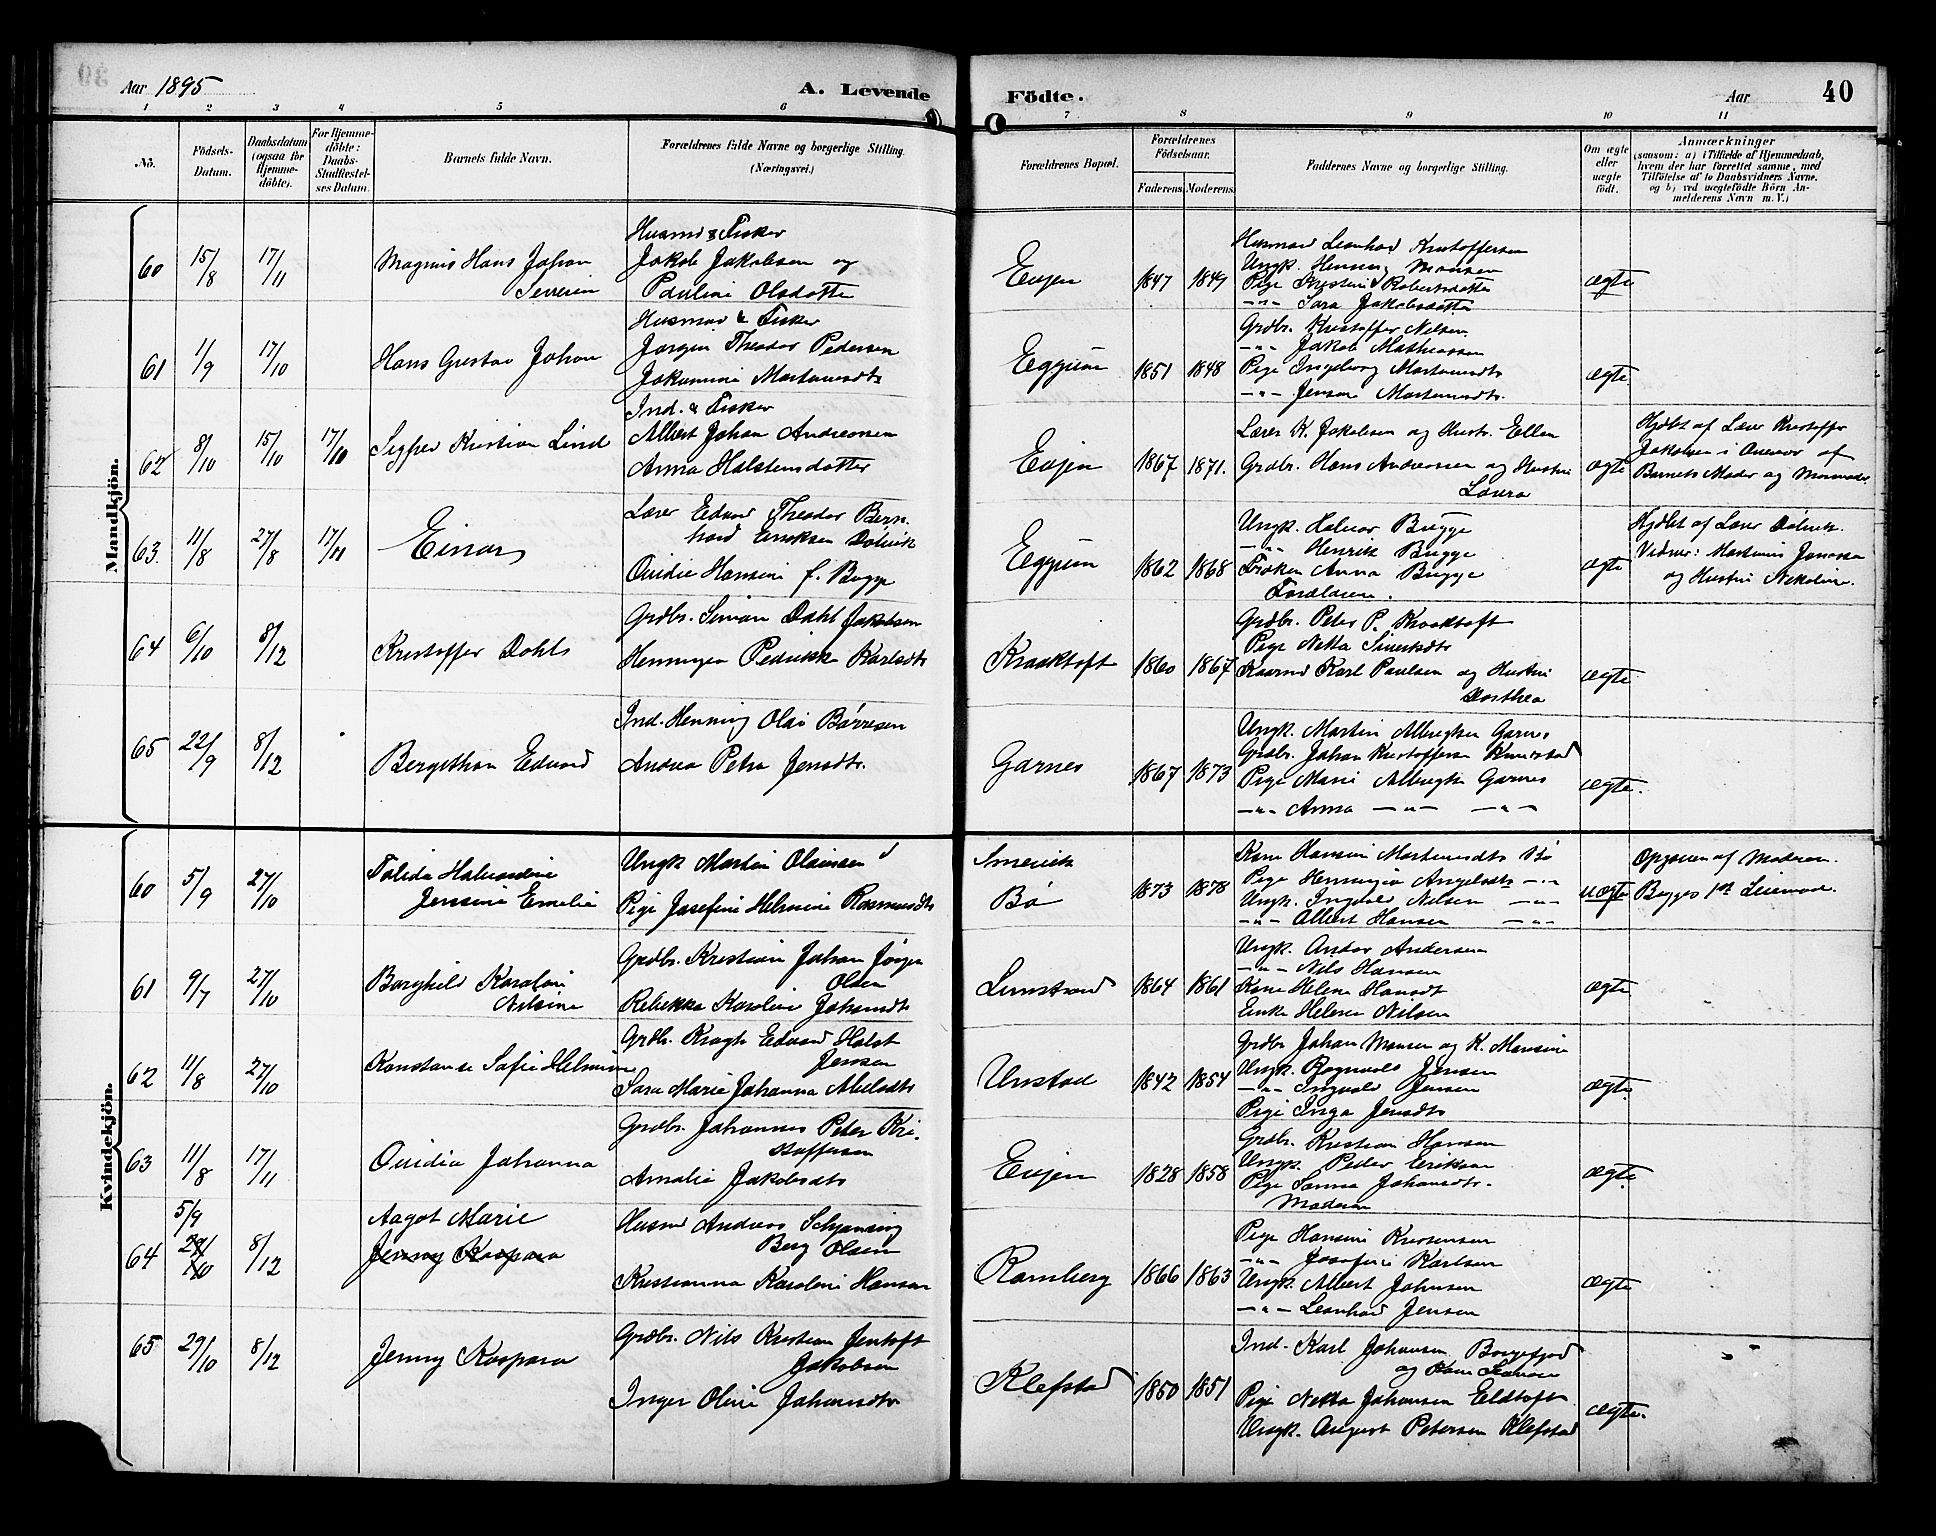 Aar 1895
A. Levende Födte.
Aar
40
1 2 3 4 5 6 7 8 9 10 11
No.
Födsels-Datum.
Daabsdatum (ogsaa for Hjemme-döbte).
For Hjemme-döbte: Daabs-Stadfæstel-ses Datum.
Barnets fulde Navn.
Forældrenes fulde Navne og borgerlige Stilling. (Næringsvei.)
Forældrenes Bopæl.
Forældrenes Födselsaar.
Faderens Moderens
Faddernes Navne og borgerlige Stilling.
Om ægte eller uægte födt.
Anmærkninger
(saasom: a) i Tilfælde af Hjemmedaab, hvem der har forrettet samme, med Tilföielse af to Daabsvidners Navne. og b) ved uægtefödte Börn An-melderens Navn m. V.)
Mandkjön.
60 15/8 17/11
Magnus Hans Johan Severin
Husmd & Fisker
Jakob Jakobsen og
Pauline Olsdatter
Evjen 1847 1849
Husmand Leonhard Kristoffersen
Ungk. Henning Monsen
Pige Kristine Robertsdatter
-"- Sara Jakobsdatter
ægte
61 11/9 17/10
Hans Gustav Johan
Husmand & Fisker
Jørgen Theodor Pedersen
Jakomine Martinusdtr
Eggum 1851 1848
Grdbr. Kristoffer Nilsen
-"- Jakob Mathiassen
Pige Ingeborg Martinusdtr
-"- Jensine Martinusdtr.
ægte
62 8/10 15/10 17/10
Sigfred Kristian Lind
Ind. & Fisker
Albert Johan Andreassen
Anna Halstensdatter
Evjen 1867 1871.
Lærer K. Jakobsen og Hustr. Ellen
Grdbr. Hans Andreassen og Hustru
Laura
ægte
Hjdbt af Lærer Kristoffer
Jakobsen i Overvær af
Barnets Moder og Mormoder.
63. 11/8 27/8 17/11
Einar
Lærer Edvard Theodor Bern-
hard Eriksen Dølvik
Ovidia Hansine f. Bugge
Eggum 1862 1868
Ungk. Halvor Bugge
-"- Henrik Bugge
Frøken Anna Bugge
Forældrene.
ægte
Hjdbt af Lærer Dølvik.
Vidner: Martinus Jonassen
og Hustru Nikoline.
64 6/10 8/12
Kristoffer Dahls
Grdbr. Simon Dahl Jakobsen
Henningea Pedrikke Karlsdtr
Kraaktoft 1860 1867
Grdbr. Peter P. Kraaktoft
Pige Netta Sivertsdtr
Kaarmd Karl Paulsen og Hustru
Dorthea
ægte
65 22/9 8/12
Bergethon Edvard
Ind. Henning Olai Børresen
Andrea Petra Jensdtr.
Garnes 1867 1873
Ungk. Martin Albrigtsen Garnes
Grdbr. Johan Kristoffersen Knutstad
Pige Marie Albrigts Garnes
-"- Anna -"- -"-
ægte.
Kvindekjön.
60 5/9 27/10
Talida Halvardine
Jensine Emelie
Ungk Martin Olaisen
Pige Josefine Helmine Rasmusdtr
Smervik
Bø 1873 1878
Kone Hansine Martinusdtr Bø
Pige Henningia Angelsdtr -"-
Ungk. Ingvald Nilsen -"-
-"- Albert Hansen -"-
uægte
Opgiven af Moderen.
Begges 1ste Leiermaal.
61 9/7 27/10
Borghild Karoline
Nilsine
Grdbr. Kristian Johan Jørgen
Olsen
Rebekka Karoline Johansdtr
Limstrand 1864 1861
Ungk. Andor Andersen
-"- Nils Hansen
Kone Helene Hansdt
Enke Helene Nilsen
ægte
62 11/8 27/10
Konstanse Sofie Helmine
Grdbr. Kragh Edvard Holst
Jensen
Sara Marie Johanna Abelsdtr
Unstad 1842 1854
Grdbr Johan Monsen og K. Monsine
Ungk. Rognvald Jensen
-"- Ingvald Jensen
Pige Inga Jensdtr
ægte.
63 11/8 17/11
Ovidia Johanna
Grdbr. Johannes Peter Kri-
stoffersen
Amalie Jakobsdtr
Evjen 1828 1858
Grdbr. Kristian Hansen
Ungk. Peder Eriksen
Pige Sanna Johansdtr.
Moderen
ægte.
64 5/9 29/10 8/12
Aagot Marie
Jenny Kaspara
Husmd Andreas Schjønning
Berg Olsen
Kristianna Karoline Hansen
Ramberg 1866 1863
Pige Hansine Kristensen
-"- Josefine Karlsen
Ungk. Albert Johnsen
-"- Leonhard Jensen
ægte
65 29/10 8/12
Jenny Kaspara
Grdbr. Nils Kristian Jentoft
Jakobsen
Inger Oline Johansdtr
Klefstad 1850 1851
Ind. Karl Johansen Borgefjord
og Kone
Pige Netta Johansen Eldtoft
Ungk. August Petersen Klefstad
ægte.